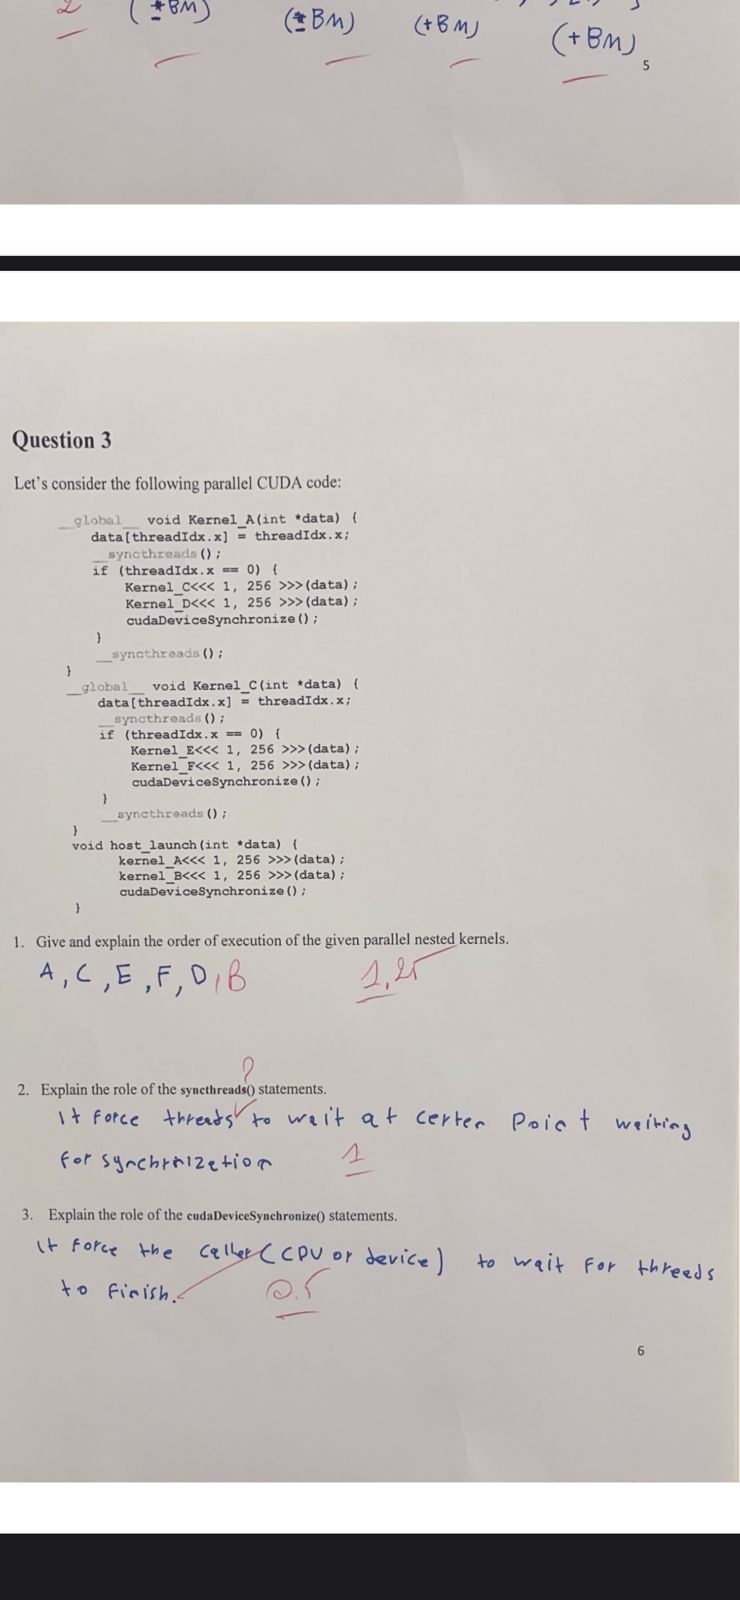 2 (±BM) (±BM) (+BM) (+BM)
5
Question 3
Let's consider the following parallel CUDA code:
__global__ void Kernel_A(int *data) {
data[threadIdx.x] = threadIdx.x;
__syncthreads();
if (threadIdx.x == 0) {
Kernel_C<<< 1, 256 >>>(data);
Kernel_D<<< 1, 256 >>>(data);
cudaDeviceSynchronize();
}
__syncthreads();
}
__global__ void Kernel_C(int *data) {
data[threadIdx.x] = threadIdx.x;
__syncthreads();
if (threadIdx.x == 0) {
Kernel_E<<< 1, 256 >>>(data);
Kernel_F<<< 1, 256 >>>(data);
cudaDeviceSynchronize();
}
__syncthreads();
}
void host_launch(int *data) {
kernel_A<<< 1, 256 >>>(data);
kernel_B<<< 1, 256 >>>(data);
cudaDeviceSynchronize();
}
1. Give and explain the order of execution of the given parallel nested kernels.
A, C, E, F, D, B 1,25
?
2. Explain the role of the syncthreads() statements.
It force threads to wait at certen point waiting
for synchrnization 1
3. Explain the role of the cudaDeviceSynchronize() statements.
It force the caller (CPU or device) to wait for threads
to finish. 0.5
6